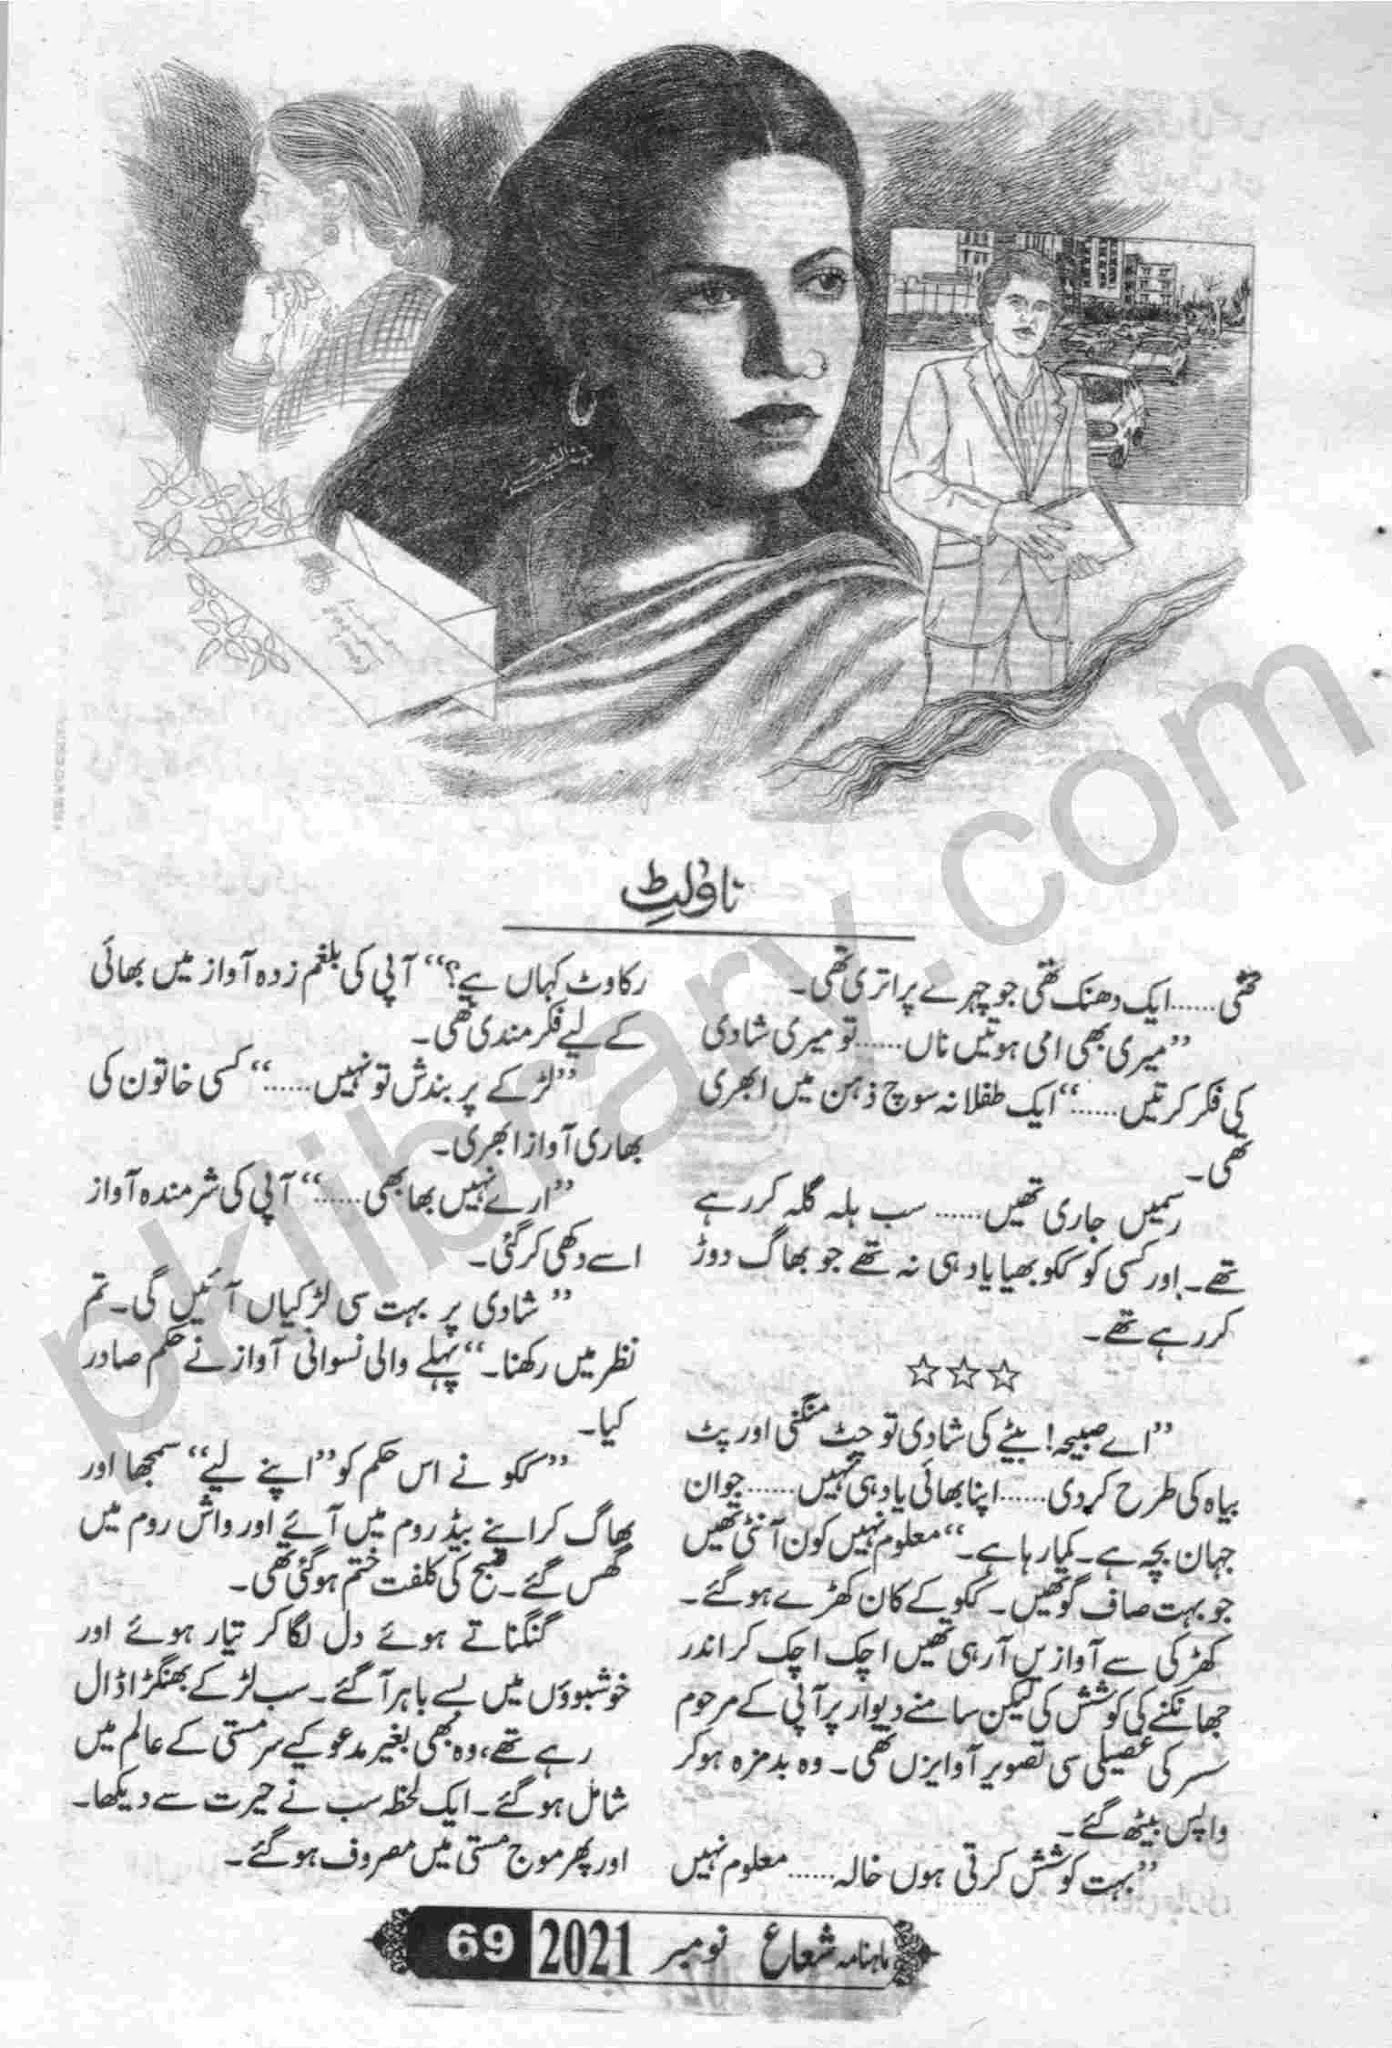 ناولٹ
تھی……ایک دھنک تھی جو چہرے پر اتری تھی۔
”میری بھی امی ہوتیں ناں……تو میری شادی
کی فکر کرتیں……“ ایک طفلانہ سوچ ذہن میں ابھری
تھی۔
رسمیں جاری تھیں…… سب ہلہ گلہ کر رہے
تھے۔ اور کسی کو ککو بھیا یاد ہی نہ تھے جو بھاگ دوڑ
کر رہے تھے۔
☆☆☆
”اے صبیحہ! بیٹے کی شادی تو چٹ منگنی اور پٹ
بیاہ کی طرح کر دی……اپنا بھائی یاد ہی نہیں……جوان
جہان بچہ ہے۔ کما رہا ہے۔“ معلوم نہیں کون آنٹی تھیں
جو بہت صاف گو تھیں۔ ککو کے کان کھڑے ہو گئے۔
کھڑکی سے آوازیں آ رہی تھیں اچک اچک کر اندر
جھانکنے کی کوشش کی لیکن سامنے دیوار پر آپی کے مرحوم
سسر کی غصیلی سی تصویر آویزاں تھی۔ وہ بدمزہ ہو کر
واپس بیٹھ گئے۔
”بہت کوشش کرتی ہوں خالہ……معلوم نہیں
رکاوٹ کہاں ہے؟“ آپی کی بلغم زدہ آواز میں بھائی
کے لیے فکر مندی تھی۔
”لڑکے پر بندش تو نہیں……“ کسی خاتون کی
بھاری آواز ابھری۔
”ارے نہیں بھابھی……“ آپی کی شرمندہ آواز
اسے دکھی کر گئی۔
”شادی پر بہت سی لڑکیاں آئیں گی۔ تم
نظر میں رکھنا۔“ پہلے والی نسوانی آواز نے حکم صادر
کیا۔
”ککو نے اس حکم کو ”اپنے لیے“ سمجھا اور
بھاگ کر اپنے بیڈ روم میں آئے اور واش روم میں
گھس گئے۔ صبح کی کلفت ختم ہو گئی تھی۔
گنگناتے ہوئے دل لگا کر تیار ہوئے اور
خوشبوؤں میں بسے باہر آ گئے۔ سب لڑکے بھنگڑا ڈال
رہے تھے، وہ بھی بغیر مدعو کیے سرمستی کے عالم میں
شامل ہو گئے۔ ایک لحظہ سب نے حیرت سے دیکھا۔
اور پھر موج مستی میں مصروف ہو گئے۔
ماہنامہ شعاع نومبر 2021 69
pklibrary.com